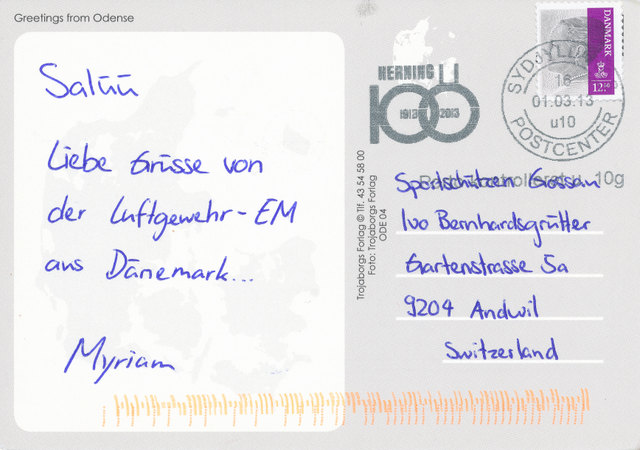 Greetings from Odense
Salüü
Liebe Grüsse von
der Luftgewehr-EM
aus Dänemark...
Myriam
HERNING
100
1913 2013
DANMARK
12.50
SYDJYLLANDS
16
01.03.13
u10
POSTCENTER
10g
Trojaborgs Forlag © Tlf. 43 54 58 00
Foto: Trojaborgs Forlag
ODE 04
Sportschützen Gossau
Ivo Bernhardsgrütter
Gartenstrasse 5a
9204 Andwil
Switzerland